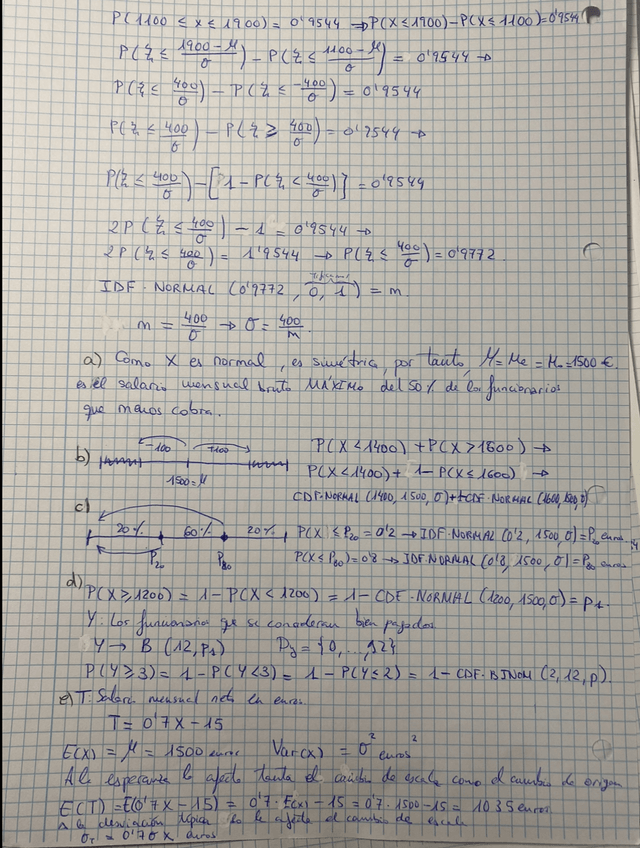 P(1100 ≤ x ≤ 1900) = 0'9544 → P(X ≤ 1900) - P(X ≤ 1100) = 0'9544
P(z ≤ (1900-μ)/σ) - P(z ≤ (1100-μ)/σ) = 0'9544 →
P(z ≤ 400/σ) - P(z ≤ -400/σ) = 0'9544
P(z ≤ 400/σ) - P(z ≥ 400/σ) = 0'9544 →
P(z ≤ 400/σ) - [1 - P(z < 400/σ)] = 0'9544
2P(z ≤ 400/σ) - 1 = 0'9544 →
2P(z ≤ 400/σ) = 1'9544 → P(z ≤ 400/σ) = 0'9772
IDF·NORMAL (0'9772, 0, 1) = m
m = 400/σ → σ = 400/m.
a) Como X es normal, es simétrica, por tanto, μ = Me = Mo = 1500 €.
es el salario mensual bruto MÁXIMO del 50% de los funcionarios
que menos cobra.
b) -100 +100
1500 = μ
P(X < 1400) + P(X > 1600) →
P(X < 1400) + 1 - P(X ≤ 1600) →
CDF·NORMAL (1400, 1500, σ) + 1 - CDF·NORMAL (1600, 1500, σ)
c) 20% 60% 20%
P20 P80
P(X ≤ P20) = 0'2 → IDF·NORMAL (0'2, 1500, σ) = P20 euros
P(X ≤ P80) = 0'8 → IDF·NORMAL (0'8, 1500, σ) = P80 euros
d) P(X ≥ 1200) = 1 - P(X < 1200) = 1 - CDF·NORMAL (1200, 1500, σ) = p1.
Y: Los funcionarios que se consideran bien pagados
Y → B (12, p1) Dy = {0, ..., 12}
P(Y ≥ 3) = 1 - P(Y < 3) = 1 - P(Y ≤ 2) = 1 - CDF·BINOM (2, 12, p).
e) T: Salario mensual neto en euros.
T = 0'7X - 15
E(X) = μ = 1500 euros Var(x) = σ² euros²
A la esperanza le afecta tanto el cambio de escala como el cambio de origen
E(T) = E(0'7X - 15) = 0'7·E(x) - 15 = 0'7·1500 - 15 = 1035 euros
A la desviación típica le afecta el cambio de escala
σT = 0'7σx euros